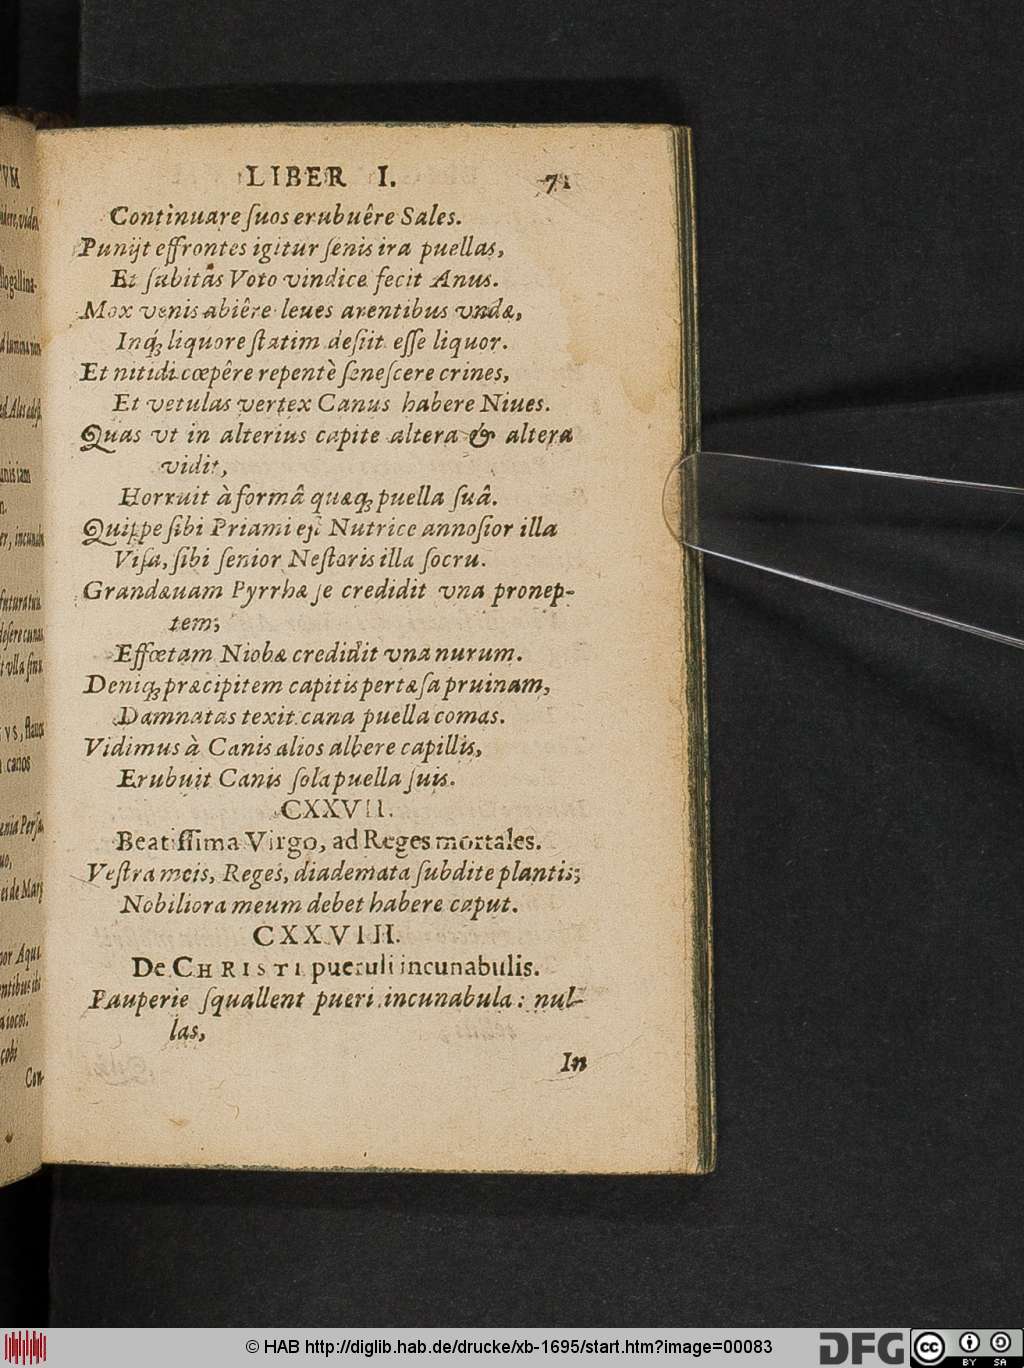 LIBER I. 71
Continuare suos erubuêre Sales.
Punijt effrontes igitur senis ira puellas,
Et subitas Voto vindice fecit Anus.
Mox venis abiêre leues arentibus vndæ,
Inq́; liquore statim desiit esse liquor.
Et nitidi cœpêre repentè senescere crines,
Et vetulas vertex Canus habere Niues.
Quas vt in alterius capite altera & altera
vidit,
Horruit à formâ quæq; puella suâ.
Quippe sibi Priami est Nutrice annosior illa
Visa, sibi senior Nestoris illa socru.
Grandæuam Pyrrhæ se credidit vna pronep-
tem;
Effœtam Niobæ credidit vna nurum.
Deniq; præcipitem capitis pertæsa pruinam,
Damnatas texit cana puella comas.
Vidimus à Canis alios albere capillis,
Erubuit Canis sola puella suis.
CXXVII.
Beatissima Virgo, ad Reges mortales.
Vestra meis, Reges, diademata subdite plantis;
Nobiliora meum debet habere caput.
CXXVIII.
De CHRISTI pueruli incunabulis.
Pauperie squallent pueri incunabula: nul-
las,
In
© HAB http://diglib.hab.de/drucke/xb-1695/start.htm?image=00083
DFG
cc BY SA